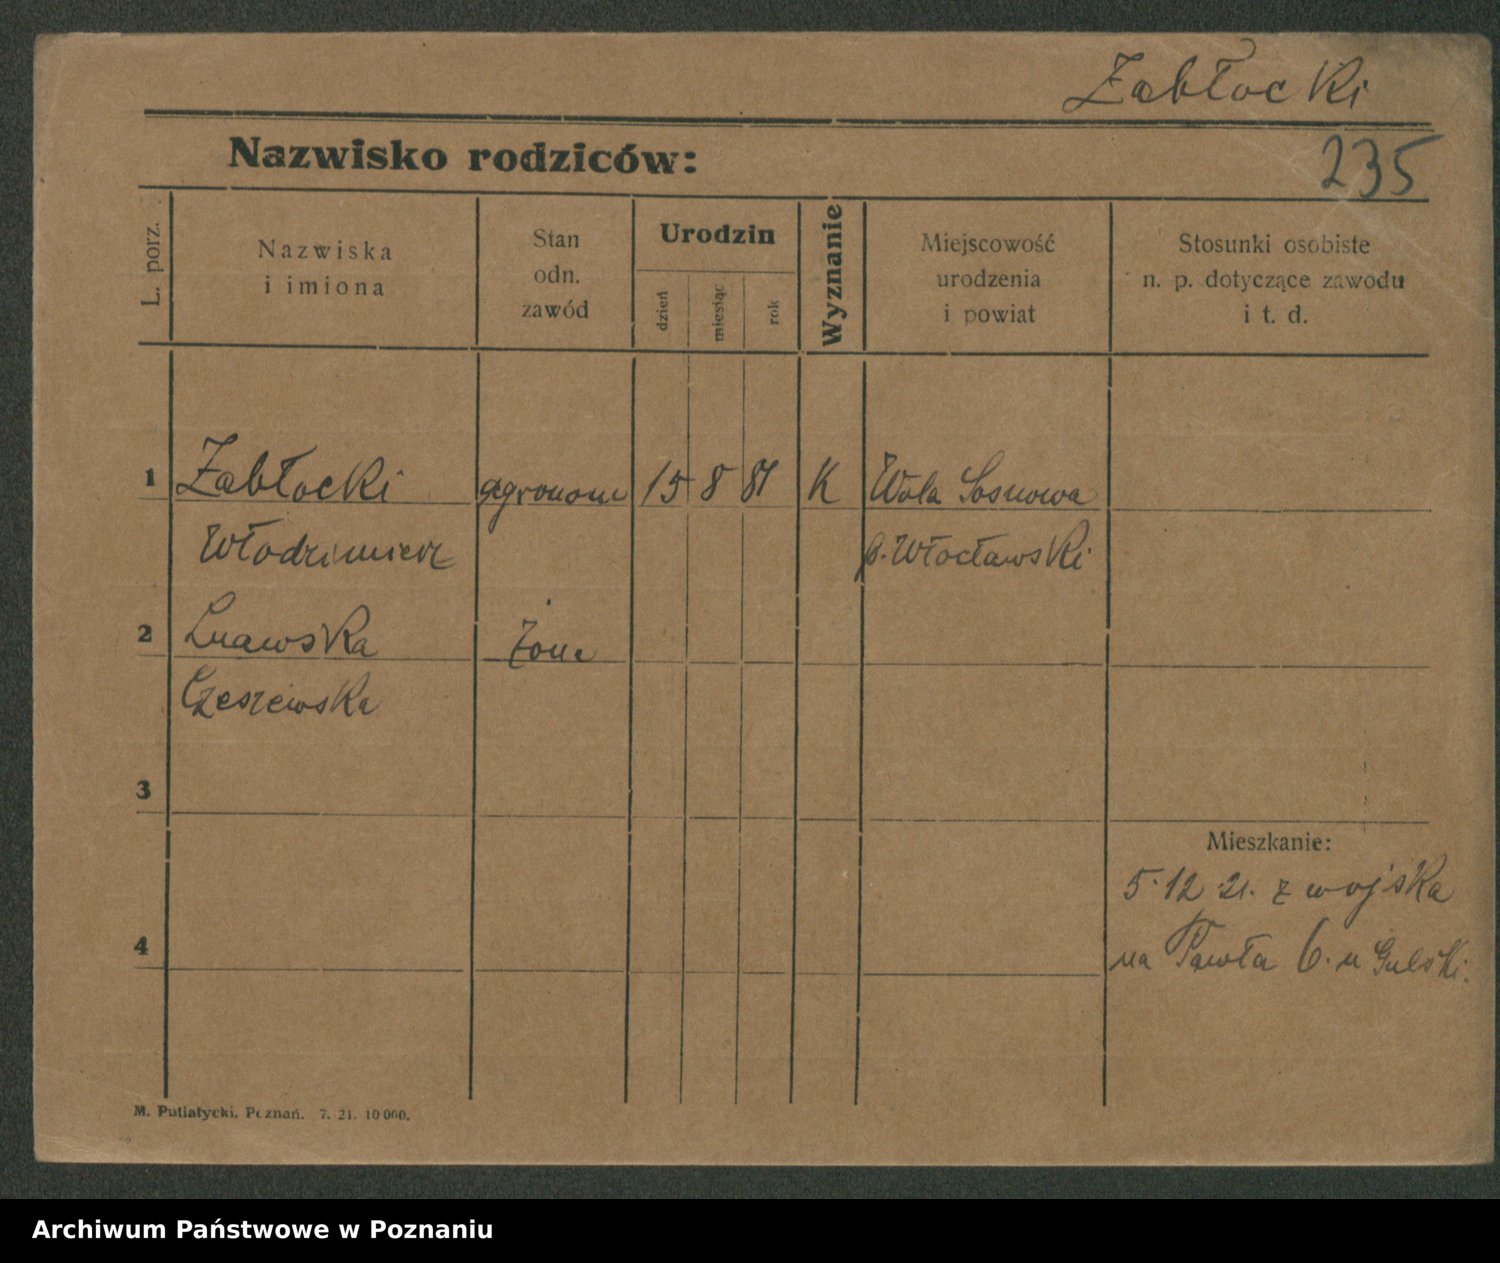 Zabłocki
Nazwisko rodziców:
235
L. porz.
Nazwiska
i imiona
Stan
odn.
zawód
Urodzin
dzień
miesiąc
rok
Wyznanie
Miejscowość
urodzenia
i powiat
Stosunki osobiste
n. p. dotyczące zawodu
i t. d.
1 Zabłocki agronom 15 8 81 K Wola Sosnowa
Włodzimierz p. Włocławski
2 żona
Czeszewska
3
Mieszkanie:
5.12 21. z wojska
4 na Pawła 6. u Gulski.
M. Putiatycki. Poznań. 7. 21. 10 000.
Archiwum Państwowe w Poznaniu